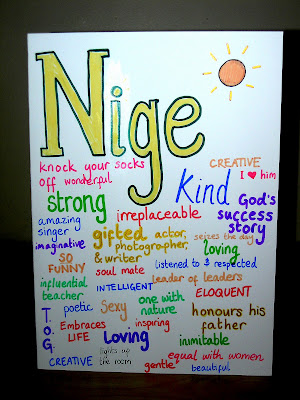 Nige
knock your socks
off wonderful
CREATIVE
I ♥ him
kind
strong
God's
success
story
amazing
singer
irreplaceable
imaginative
gifted actor,
photographer,
& writer
seizes the day
loving
SO
FUNNY
soul mate
listened to & respected
influential
teacher
INTELLIGENT
leader of leaders
T.
O.
G.
poetic
Sexy
one with
nature
ELOQUENT
honours his
father
Embraces
LIFE
inspiring
Loving
lights up
the room
inimitable
CREATIVE
gentle
equal with women
beautiful